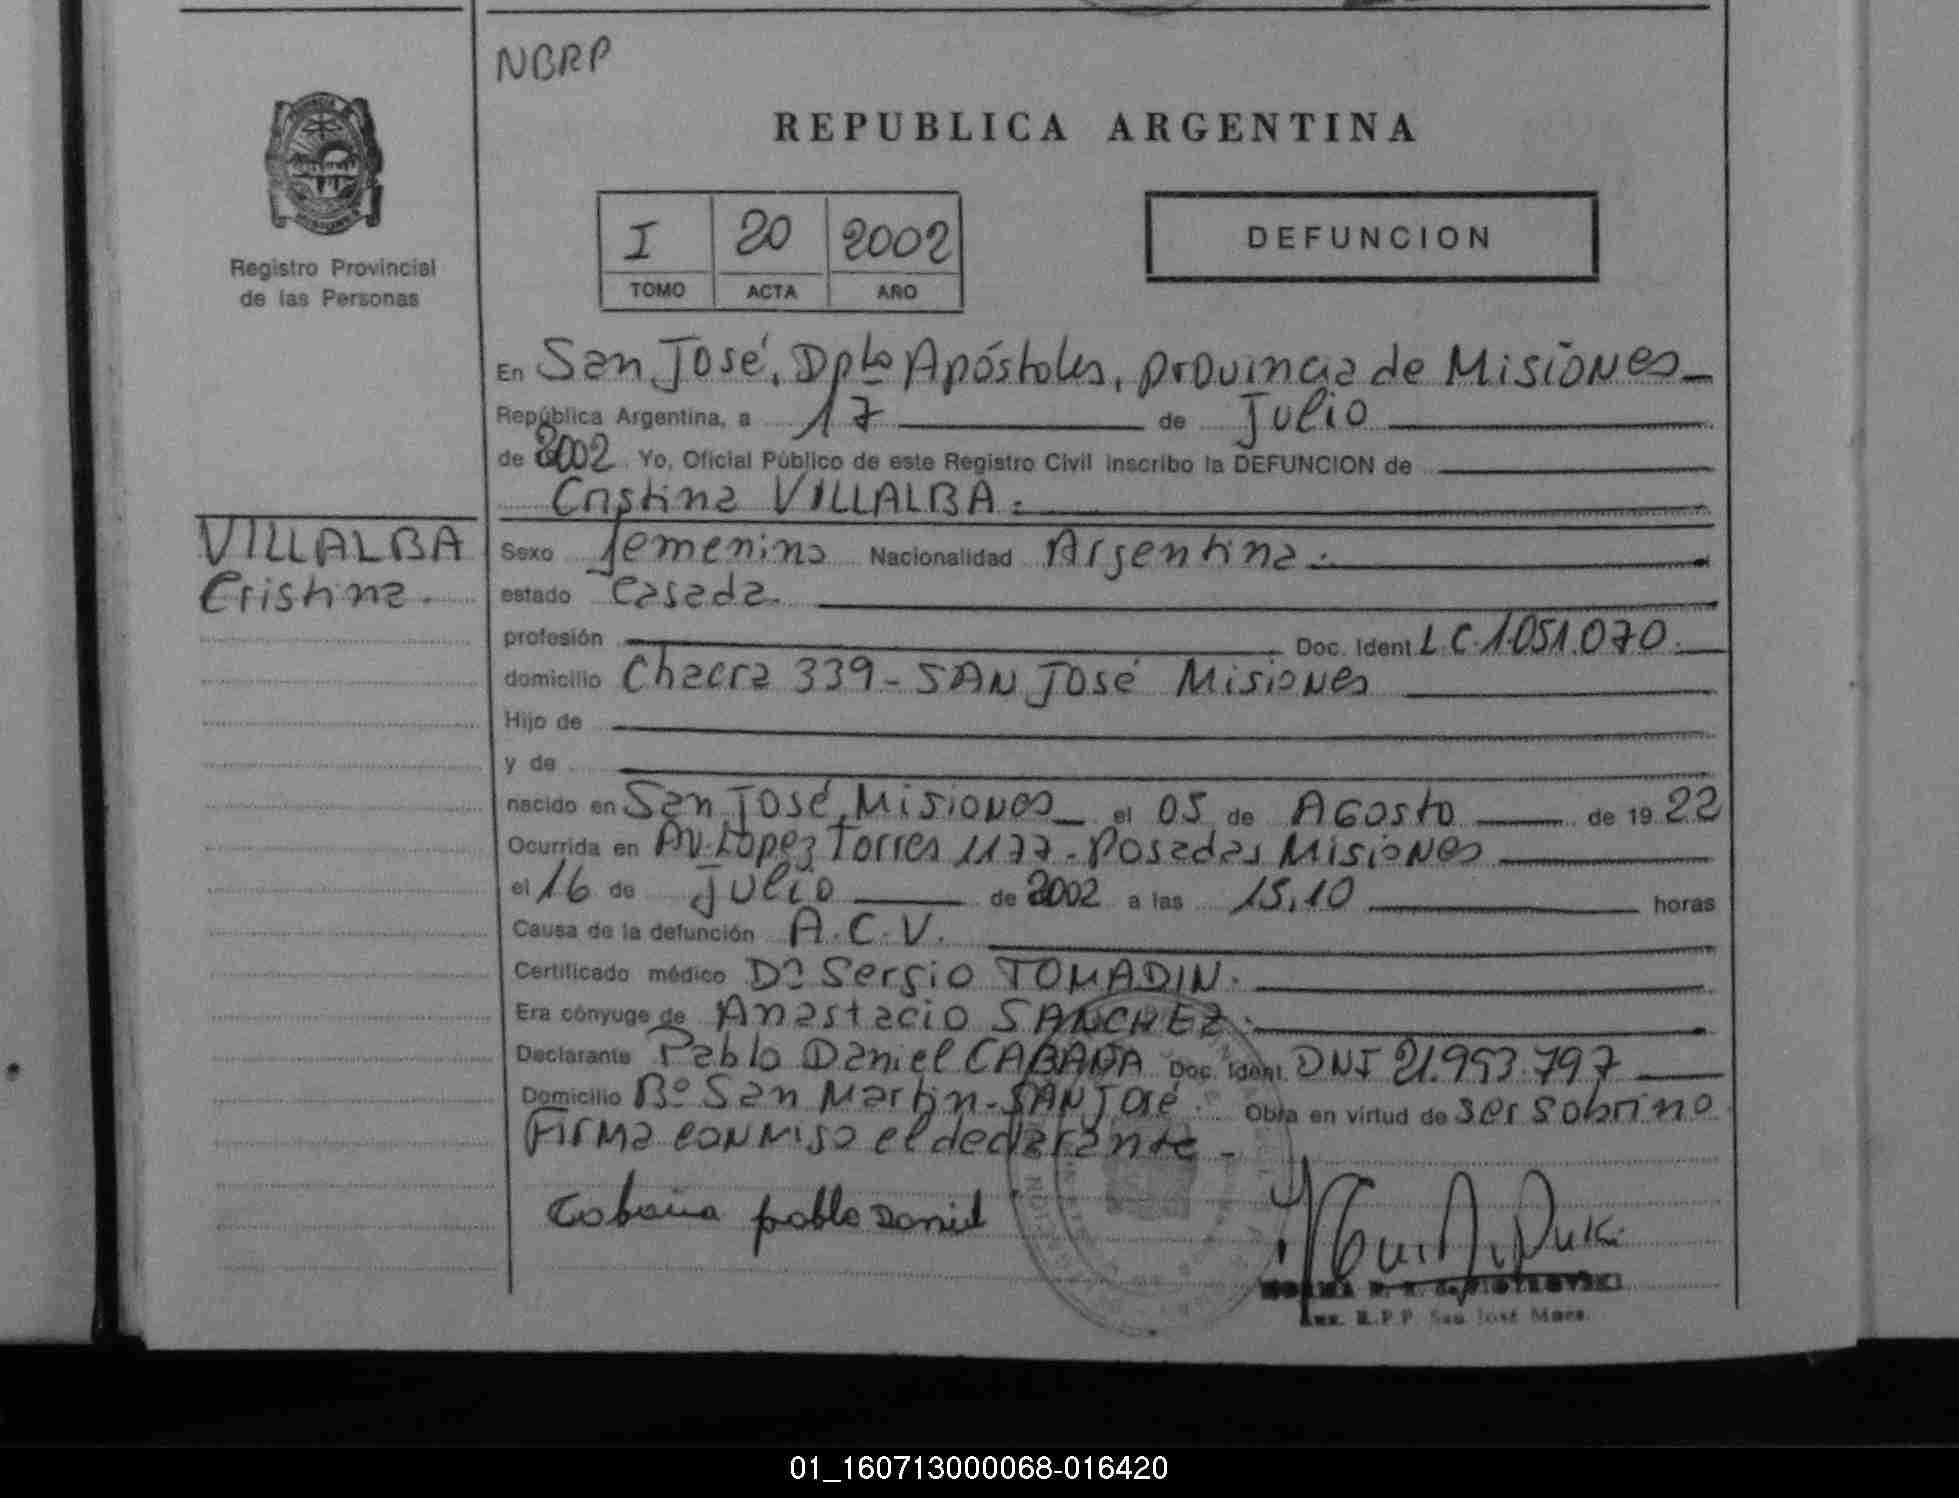 NBRP
REPUBLICA ARGENTINA
I 20 2002
TOMO ACTA AÑO
DEFUNCION
Registro Provincial
de las Personas
En San José, Dpto Apóstoles, provincia de Misiones
República Argentina, a 17 de Julio
de 2002 Yo, Oficial Público de este Registro Civil inscribo la DEFUNCION de
Cristina VILLALBA.
VILLALBA
Cristina.
Sexo femenino Nacionalidad Argentina.
estado Casada.
profesión Doc. Ident L.C. 1.051.070.
domicilio Chacra 339 - SAN José Misiones
Hijo de
y de
nacido en San José, Misiones el 05 de Agosto de 19 22
Ocurrida en Av. López Torres 1177 - Posadas Misiones
el 16 de Julio de 2002 a las 15,10 horas
Causa de la defunción A.C.V.
Certificado médico Dr Sergio TOMADIN.
Era cónyuge de Anastacio SANCHEZ.
Declarante Pablo Daniel CABAÑA Doc. Ident. DNI 21.953.797
Domicilio Bº San Martin - SAN José. Obra en virtud de ser sobrino
Firma conmigo el declarante -
Cabaña pablo Daniel
R.P.P. San José Mnes.
01_160713000068-016420